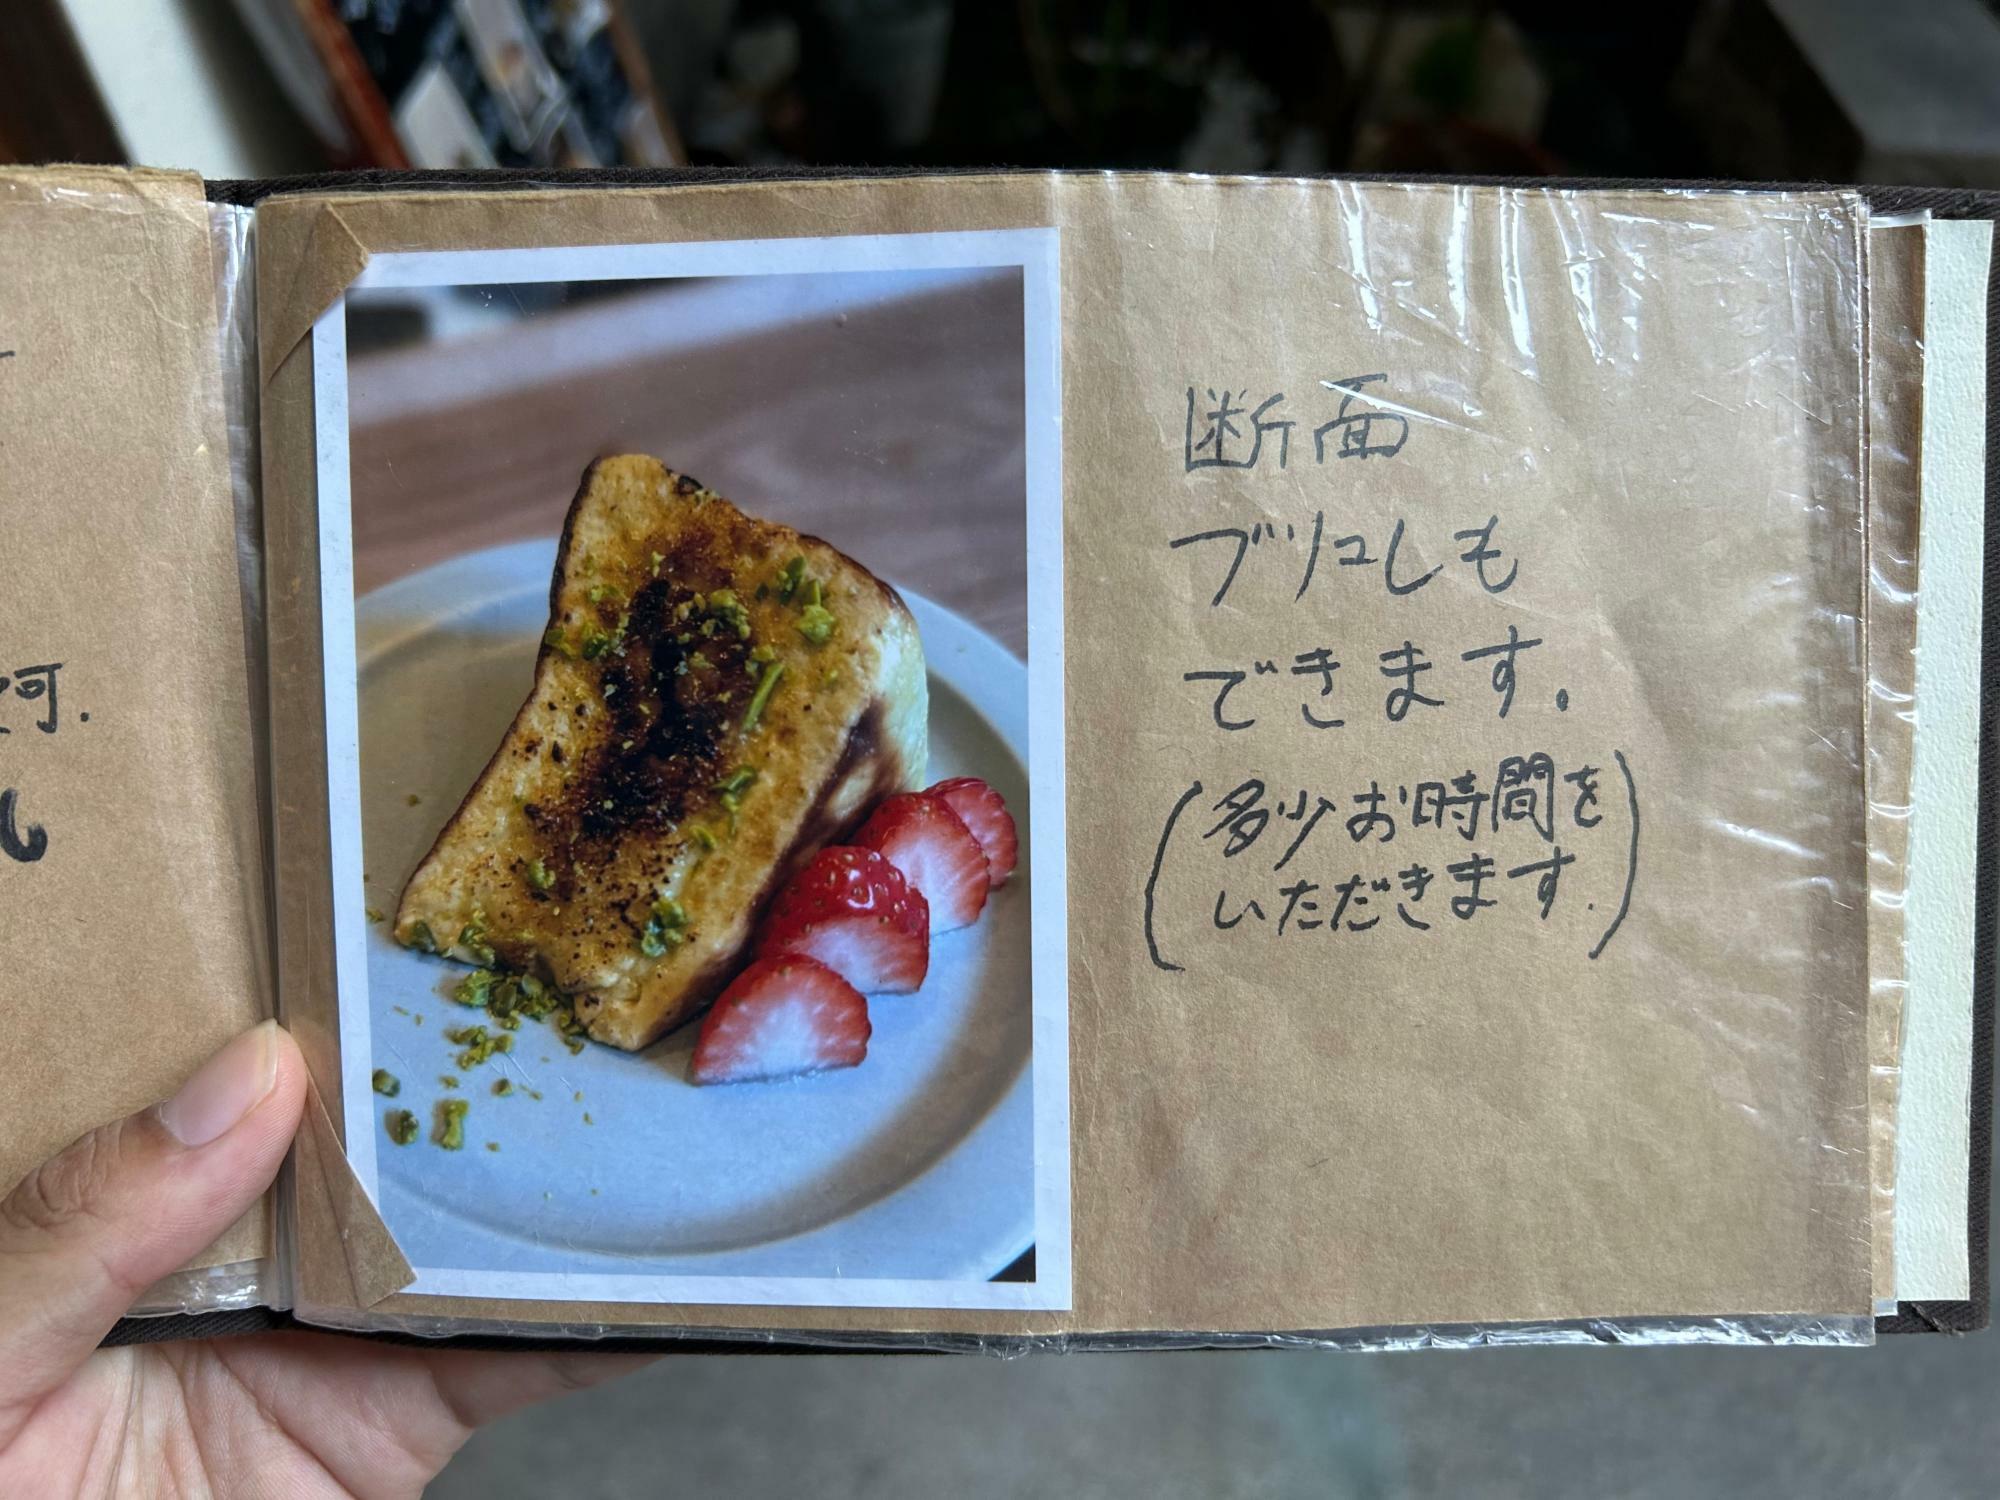 可.
断面
ブリュレも
できます。
(多少お時間を
いただきます.)